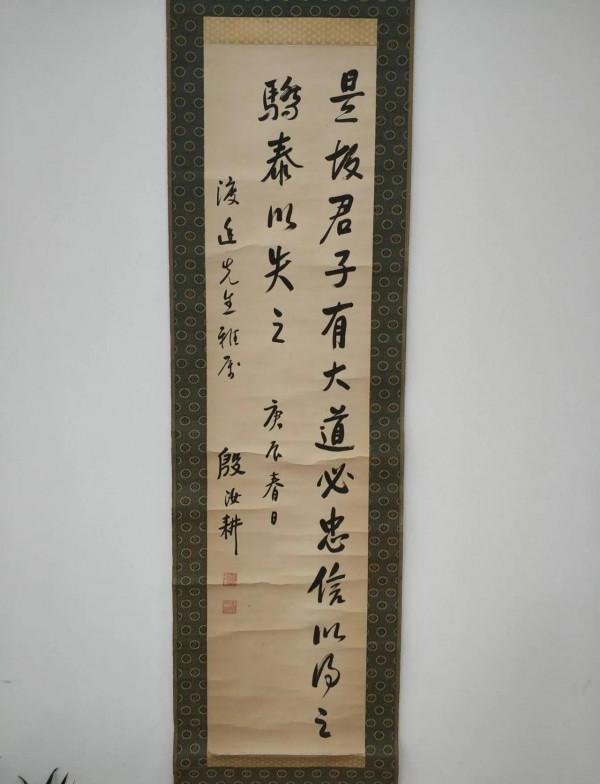 是故君子有大道必忠信以得之
驕泰以失之 庚辰春日
渡辺先生雅属 殷汝耕